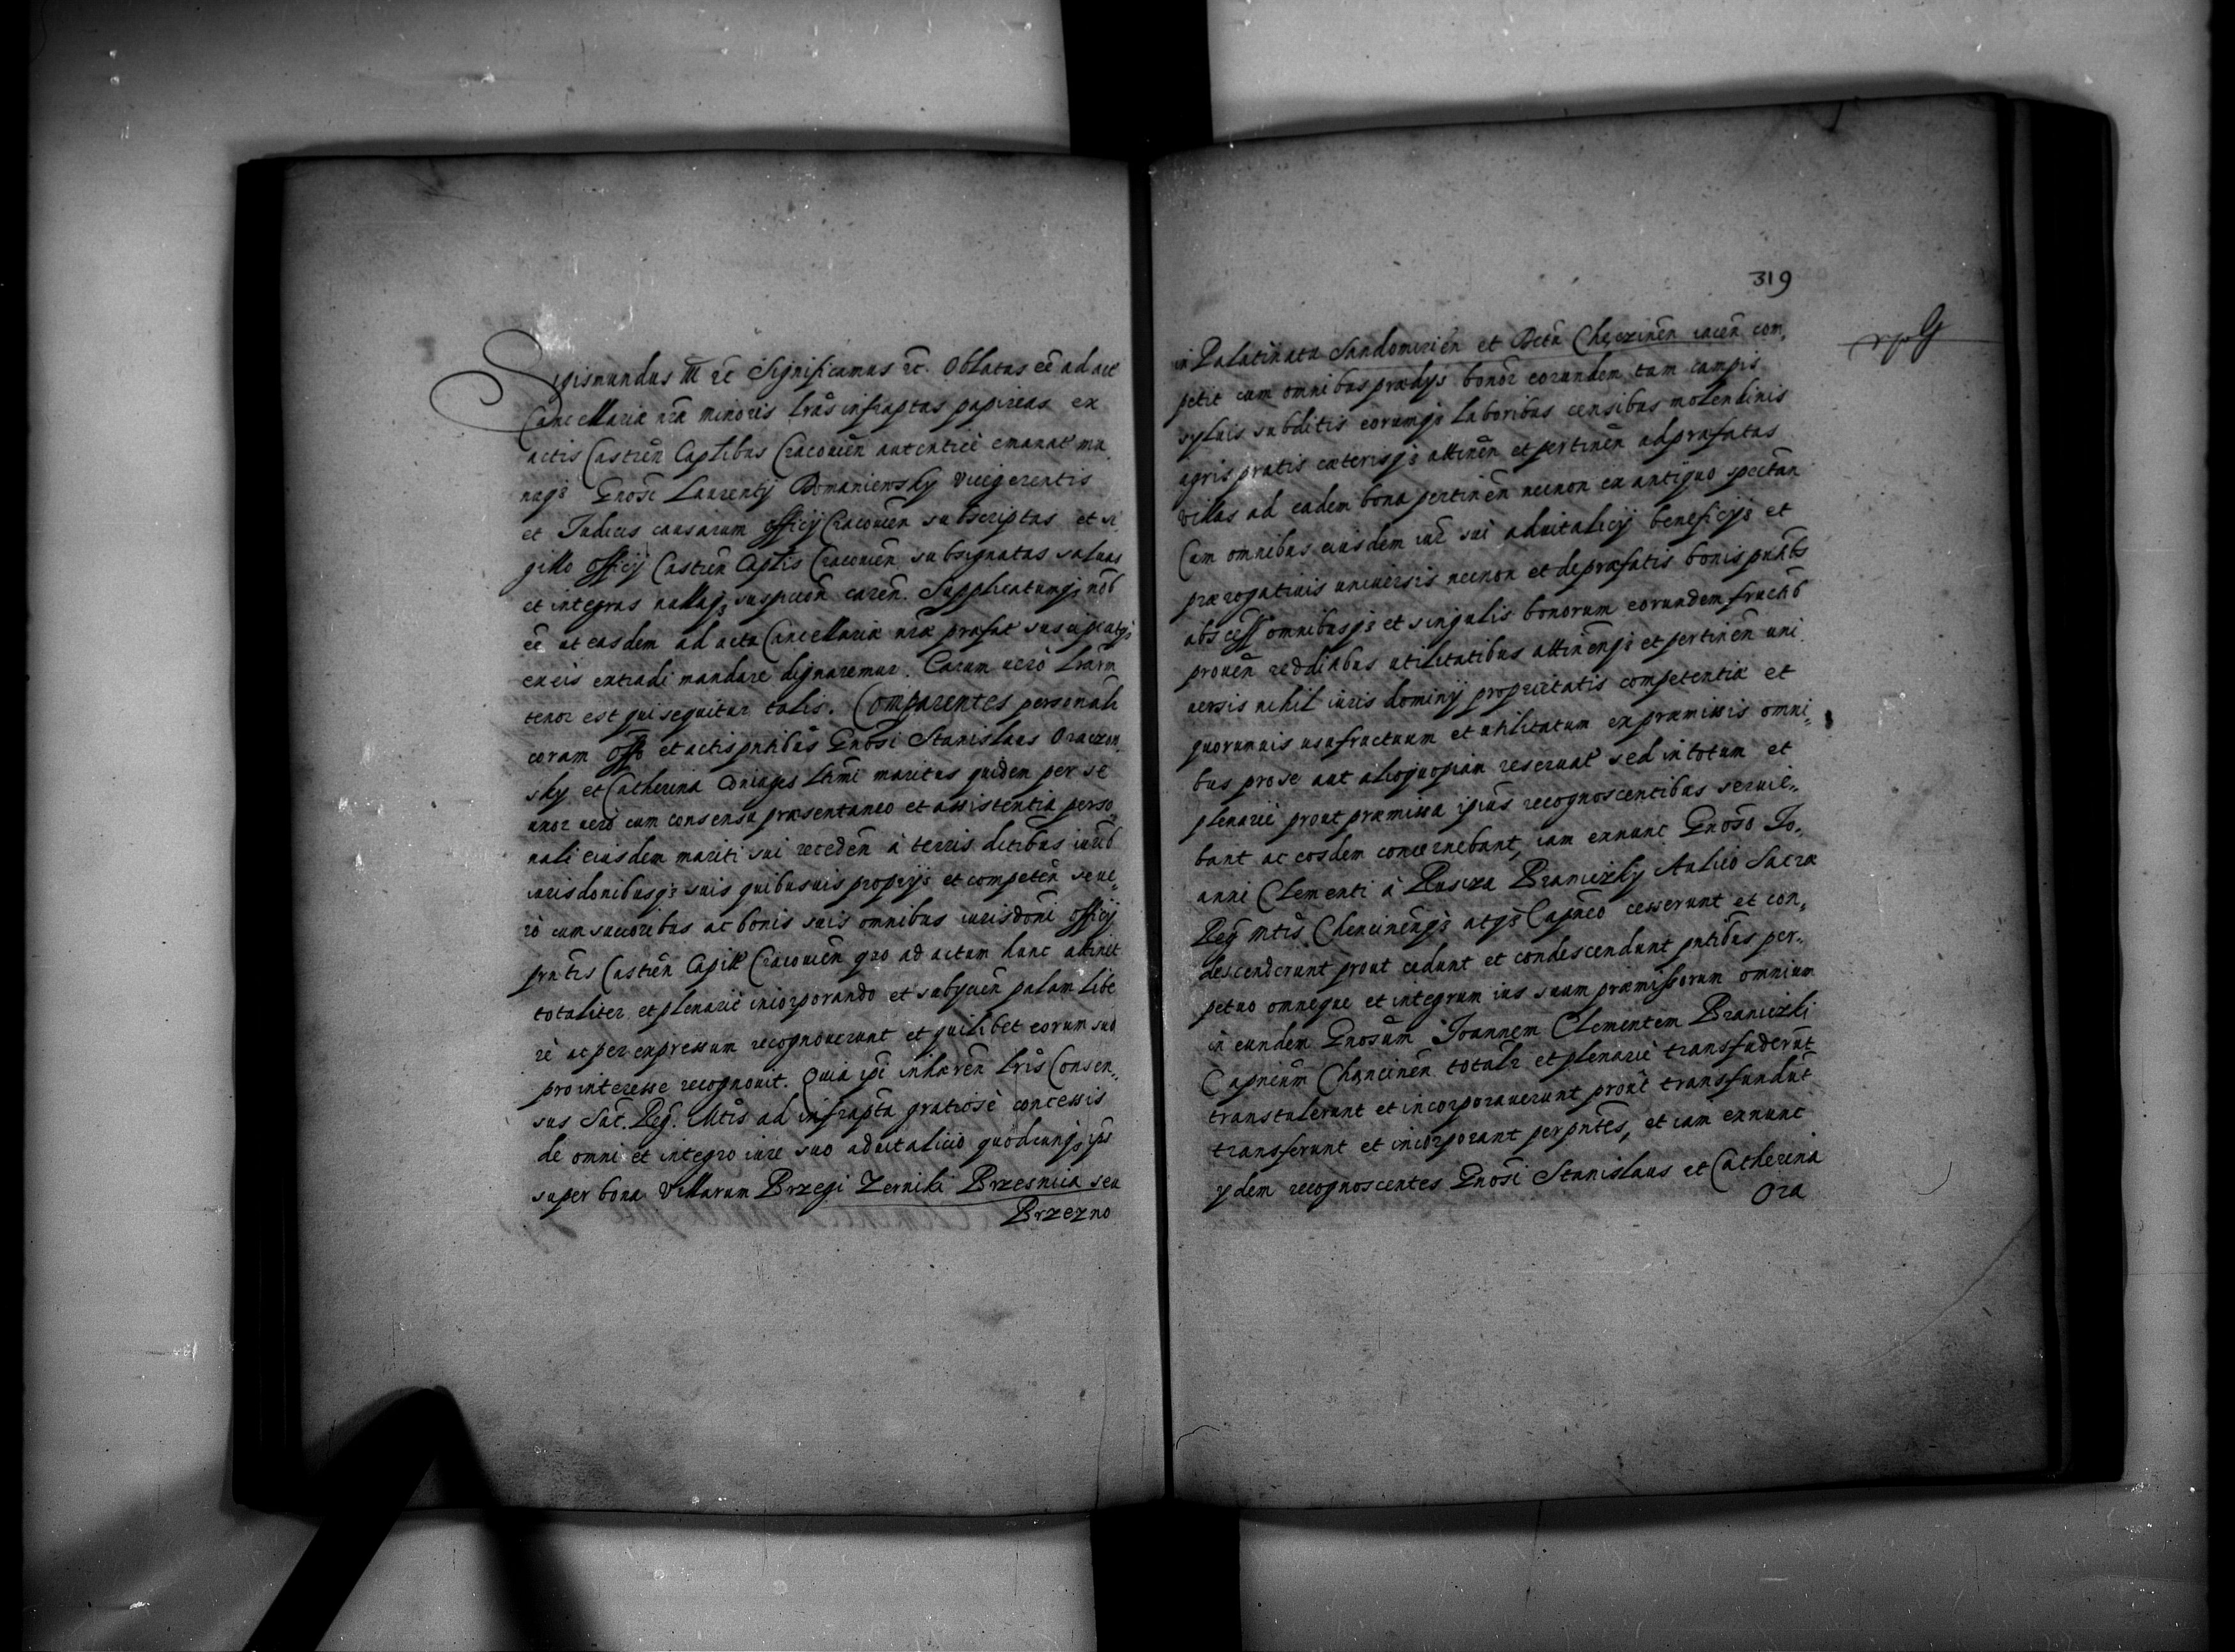 Sigismundus III etc Significamus etc. Oblatas eē ad act
Cancellariæ nrā minoris lrās infraptas papireas ex
actis Castreñ Captlibus Cracovieñ autenticè emanat ma
nuq; Gnosi Laurentij Romaniewsky Vicegerentis
et Iudicis causarum officij Cracovieñ subscriptas et si,
gillo officij Castreñ Captlis Cracovieñ subsignatas salvas
et integras nullaq; suspicioñ careñ. Supplicatumq; nob
eē ut easdem ad acta Cancellariæ nræ præfat suscipi atq;
ex eis extradi mandare dignaremur. Earum verò lrarm
tenor est qui sequitur talis. Comparentes personalr
coram Offo et actis pntibus Gnosi Stanislaus Oraczow,
sky et Catherina Coniuges ltimi maritus quidem per se
uxor verò cum consensu præsentaneo et assistentia perso,
nali eiusdem mariti sui recedeñ à terris ditibus iurib
iurisdonibusq; suis quibusvis proprijs et competeñ seve,
rò cum succoribus ac bonis suis omnibus iurisdoni officij
pntis Castreñ Capit Cracovieñ quo ad actum hunc attinet
totaliter et plenariè incorporando et subijcieñ palam libe
rè ac per expressum recognoverunt et quilibet eorum suo
pro interesse recognovit. Quia ipi inhæreñ lris Consen,,
sus Sac. Reg. Mtis ad infrapta gratiosè concessis
de omni et integro iure suo advitalicio quodcunq; ips
super bona Villarum Brzegi Zerniki Brzesnica seu
Brzezno
319
in Palatinatu Sandomirieñ et Dctu Chęczineñ iaceñ com,
petit cum omnibus prædijs bonor eorundem tum campis
sylvis subditis eorumq; laboribus censibus molendinis
agris pratis cæterisq; attineñ et pertineñ ad præfatas
villas ad eadem bona pertineñ necnon ex antiquo spectañ
Cum omnibus eiusdem iur sui advitalicij beneficijs et
prærogativis universis necnon et de præfatis bonis pntibs
abscess omnibusq; et singulis bonorum eorundem fructib
proveñ redditibus utilitatibus attineñq; et pertineñ uni
versis nihil iuris dominij proprietatis competentiæ et
quorumvis usufructuum et utilitatum ex præmissis omni,,
bus pro se aut alioquopiam reservat sed in totum et
plenariè prout præmissa ipsus recognoscentibus servie,,
bant ac eosdem concernebant, iam exnunc Gnoso Io,
anni Clementi à Ruscza Braniczky Aulico Sacræ
Reg Mtis Chencineñq; atq; Capneo cesserunt et con,,
descenderunt prout cedunt et condescendunt pntibus per,,
petuo omneque et integrum ius suum præmissorum omnium
in eundem Gnosum Ioannem Clementem Braniczki
Capneum Chęncineñ totalr et plenariè transfuderūt
transtulerunt et incorporaverunt prout transfundūt
transferunt et incorporant per pntes, et iam exnunc
ydem recognoscentes Gnosi Stanislaus et Catherina
Ora